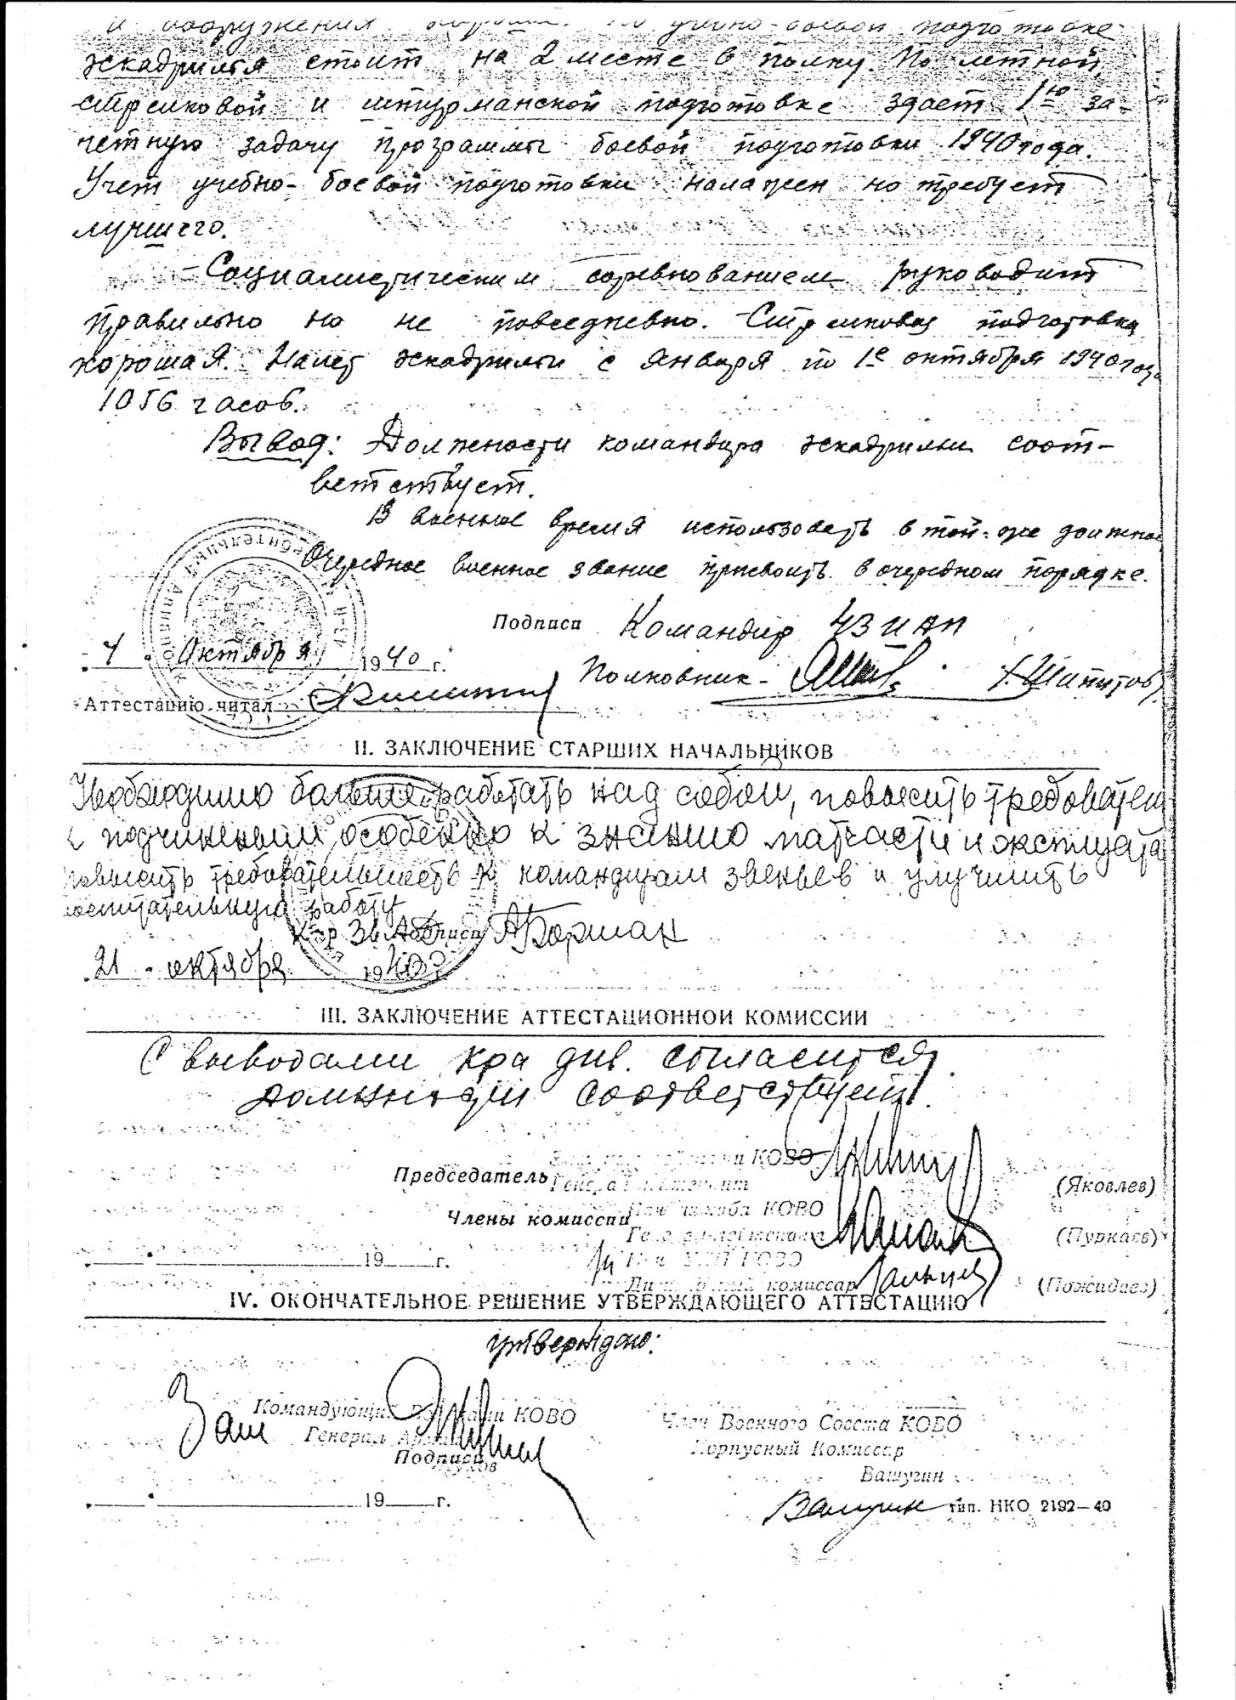 и вооружения хорошее. По учебно-боевой подготовке
эскадрилья стоит на 2 месте в полку. По летной,
стрелковой и штурманской подготовке здает 1ю за-
четную задачу программы боевой подготовки 1940 года.
Учет учебно-боевой подготовки налажен но требует
лучшего.
Социалистическим соревнованием руководит
правильно но не повседневно. Стрелковая подготовка
хорошая. Налет эскадрильи с января по 1е октября 1940 года
1056 часов.
Вывод: Должности командира эскадрильи соот-
ветствует.
В военное время использовать в той-же должнос
Очередное военное звание присвоить в очередном порядке.
Подписи Командир 43 ИАП
"4" Октября 1940 г.
Полковник - /Шипитов/
Аттестацию читал
II. ЗАКЛЮЧЕНИЕ СТАРШИХ НАЧАЛЬНИКОВ
Необходимо больше работать над собой, повысить требовател
к подчиненным особенно к знанию матчасти и эксплуата
повысить требовательность к командирам звеньев и улучшить
воспитательную работу
К-р Подписи АБорман
21 октября 1940 г.
III. ЗАКЛЮЧЕНИЕ АТТЕСТАЦИОННОЙ КОМИССИИ
С выводами к-ра див. согласится.
Должности соответствует.
КОВО
Председатель Генерал (Яковлев)
КОВО
Члены комиссии (Пуркаев)
19 г.
КОВО
Див. комиссар (Пожидаев)
IV. ОКОНЧАТЕЛЬНОЕ РЕШЕНИЕ УТВЕРЖДАЮЩЕГО АТТЕСТАЦИЮ
утверждаю:
Зам Командующий Войсками КОВО
Генерал Армии
Подписи
Член Военного Совета КОВО
Корпусный Комиссар
Вашугин
19 г.
Вашугин
тип. НКО 2192—40